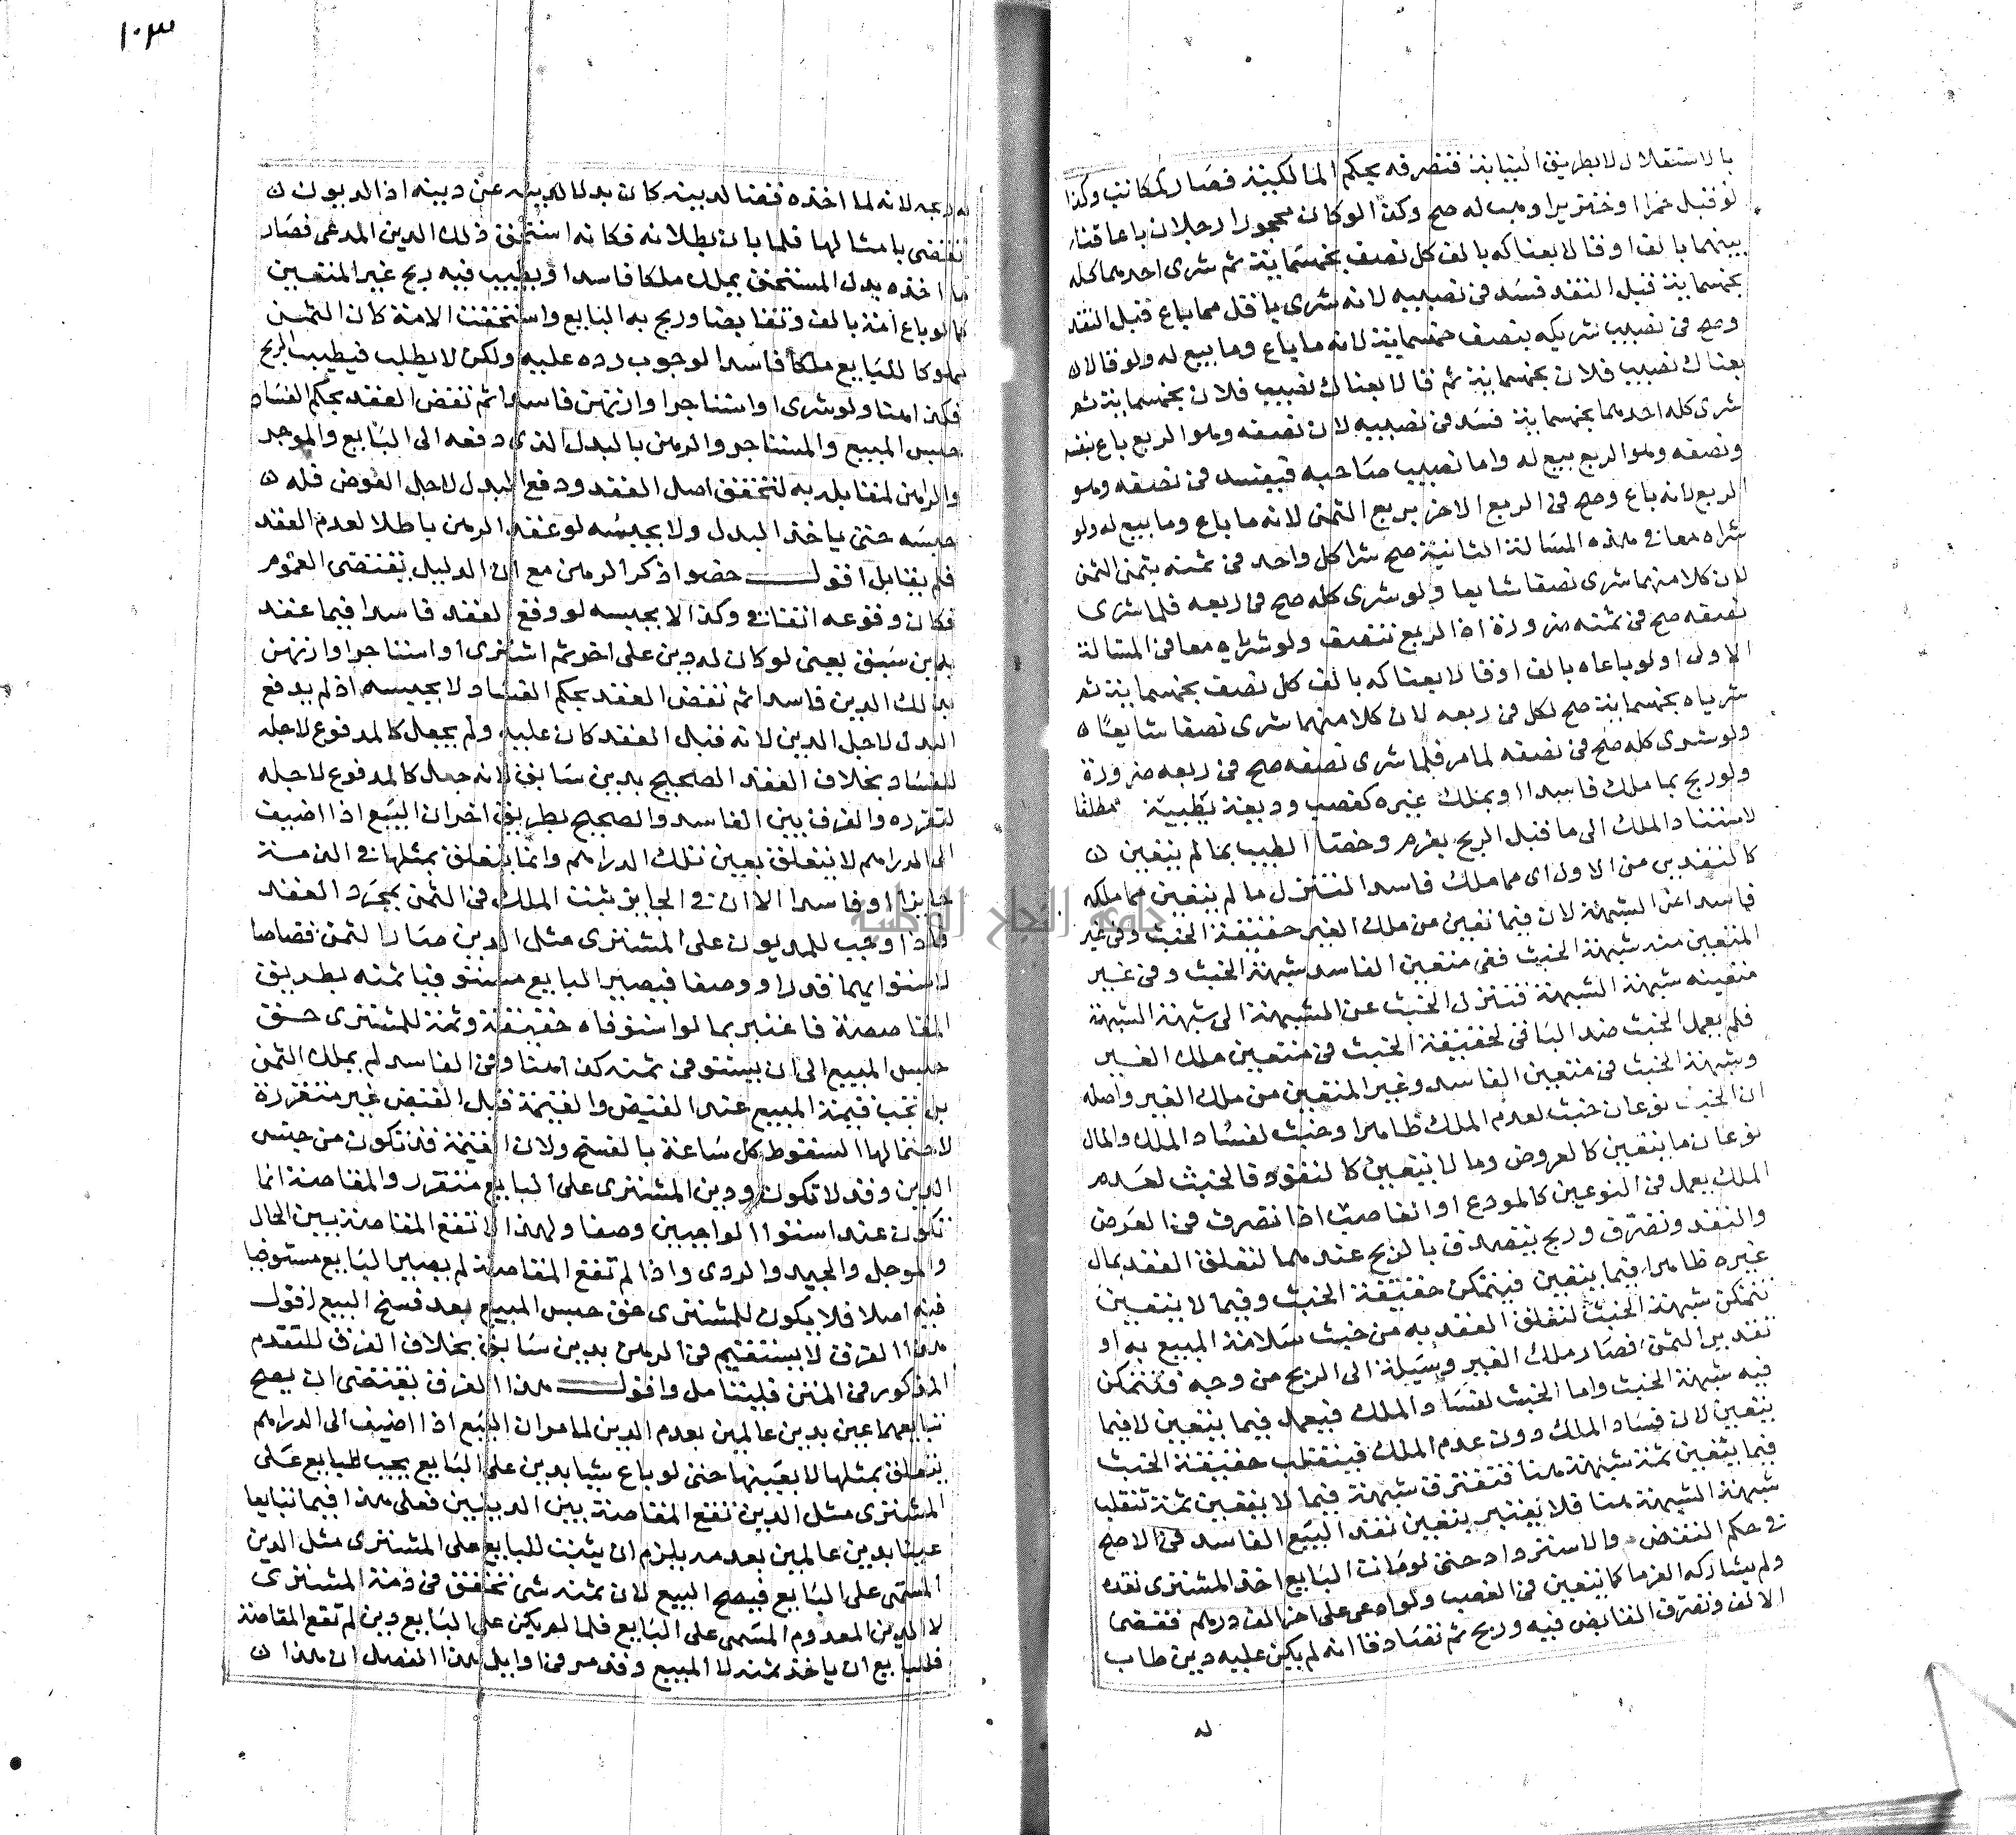 بالاستقلال لا بطريق النيابة فتصرفه بحكم المالكية فصار كمكاتب وكذا
لو قبل خمرا او خنزيرا وهب له صح وكذا لو كان محجورا رجلان باعا قنا
بينهما بالف او قالا بعناكه بالف كل نصف بخمسماية ثم شرى احدهما كله
بخمسماية قبل النقد فسد في نصيبه لانه شرى باقل مما باع قبل النقد
وصح في نصيب شريكه بنصف خمسماية لانه ما باع وما بيع له ولو قالا ن
بعناك نصيب فلان بخمسماية ثم قالا بعناك نصيب فلان بخمسماية ثم
شرى كله احدهما بخمسماية فسد في نصيبه لان نصفه وهو الربع باع بنفسه
ونصفه وهو الربع بيع له واما نصيب صاحبه فيفسد في نصفه وهو
الربع لانه باع وصح في الربع الاخر بربع الثمن لانه ما باع وما بيع له ولو
شراه معا في هذه المسالة الثانية صح شرا كل واحد في ثمنه بثمن الثمن
لان كلا منهما شرى نصفا شايعا ولو شرى كله صح في ربعه فلما شرى
نصفه صح في ثمنه ضرورة اذ الربع تنصف ولو شرياه معا في المسالة
الاولى او لو باعاه بالف او قالا بعناكه بالف كل نصف بخمسماية ثم
شرياه بخمسماية صح لكل في ربعه لان كلا منهما شرى نصفا شايعا ن
ولو شرى كله صح في نصفه لما مر فلما شرى نصفه صح في ربعه ضرورة
ولو ربح بما ملك فاسدا او بملك غيره كغصب ووديعة يطيبه مطلقا
لاستناد الملك الى ما قبل الربح بغرم وخصا الطيب بما لم يتعين ن
كالنقدين من الاول اى مما ملك فاسدا لتنزل ما لم يتعين مما ملكه
فاسدا عن الشبهة لان فيما تعين من ملك الغير حقيقة الخبث وفي غير
المتعين منه شبهة الخبث ففي متعين الفاسد شبهة الخبث وفي غير
متعينه شبهة الشبهة فتنزل الخبث عن الشبهة الى شبهة الشبهة
فلم يعمل الخبث ضد الباقي لحقيقة الخبث في متعين ملك الغير
وشبهة الخبث في متعين الفاسد وغير المتعين من ملك الغير واصله
ان الخبث نوعان خبث لعدم الملك ظاهرا وخبث لفساد الملك والمال
نوعان ما يتعين كالعروض وما لا يتعين كالنقود فالخبث لعدم
الملك يعمل في النوعين كالمودع او الغاصب اذا تصرف في العرض
والنقد وتصرف وربح يتصدق بالربح عندهما لتعلق العقد بمال
غيره ظاهرا فيما يتعين فيتمكن حقيقة الخبث وفيما لا يتعين
تتمكن شبهة الخبث لتعلق العقد به من حيث سلامة المبيع به او
تقدير الثمن فصار ملك الغير وسيلة الى الربح من وجه فتتمكن
فيه شبهة الخبث واما الخبث لفساد الملك فيعمل فيما يتعين لا فيما
يتعين لان فساد الملك دون عدم الملك فينقلب حقيقة الخبث
فيما يتعين ثمة شبهة هنا فتفترق شبهة فيما لا يتعين ثمة تنقلب
شبهة الشبهة هنا فلا يعتبر يتعين نقد البيع الفاسد في الاصح
في حكم النقض والاسترداد حتى لو مات البايع اخذ المشترى نقده
ولم يشاركه الغرما كما يتعين في الغصب ولو ادعى على اخر الف درهم فقضى
الالف وتصرف القابض فيه وربح ثم تصادقا انه لم يكن عليه دين طاب
له
١٠٣
له ربحه لانه لما اخذه قضا لدينه كان بدلا لدينه عن دينه اذ الديون ن
تقتضى بامثالها فلما بان بطلانه فكانه استحق ذلك الدين المدعى فصار
ما اخذه بدل المستحق يملك ملكا فاسدا ويطيب فيه ربح غير المتعين
كما لو باع امة بالف وتقابضا وربح به البايع واستحقت الامة كان الثمن
مملوكا للبايع ملكا فاسدا لوجوب رده عليه ولكن لا يطلب فيطيب الربح
فكذا هنا ولو شرى او استاجر او ارتهن فاسدا ثم نقض العقد بحكم الفساد
حبس المبيع والمستاجر والرهن بالبدل الذى دفعه الى البايع والموجر
والراهن لمقابلته به لتحقق اصل العقد ودفع البدل لاجل العوض فله ن
حبسه حتى ياخذ البدل ولا يحبسه لو عقد الرهن باطلا لعدم العقد
فلم يقابل اقول خصوا ذكر الرهن مع ان الدليل يقتضى العموم
فكان وقوعه اتفاقي وكذا لا يحبسه لو وقع العقد فاسدا فيما عقد
بدين سبق يعنى لو كان له دين على اخر ثم اشترى او استاجر او ارتهن
بذلك الدين فاسدا ثم نقض العقد بحكم الفساد لا يحبسه اذ لم يدفع
البدل لاجل الدين لانه قبل العقد كان عليه ولم يجعل كالمدفوع لاجله
للفساد بخلاف العقد الصحيح بدين سابق لانه جعل كالمدفوع لاجله
لتقرره والفرق بين الفاسد والصحيح بطريق اخر ان البيع اذا اضيف
الى الدراهم لا يتعلق بعين تلك الدراهم وانما يتعلق بمثلها في الذمة
جايزا او فاسدا الا ان في الجايز يثبت الملك في الثمن بمجرد العقد
فاذا وجب للمديون على المشترى مثل الدين صار الثمن قصاصا
لاستوايهما قدرا ووصفا فيصير البايع مستوفيا ثمنه بطريق
المقاصصة فاعتبر بما لو استوفاه حقيقة وثمة للمشترى حق
حبس المبيع الى ان يستوفى ثمنه كذا هنا وفي الفاسد لم يملك الثمن
بل تجب قيمة المبيع عند القبض والقيمة قبل القبض غير متقررة
لاحتمالها السقوط كل ساعة بالفسخ ولان القيمة قد تكون من جنس
الدين وقد لا تكون ودين المشترى على البايع متقرر والمقاصة انما
تكون عند استوا الواجبين وصفا ولهذا لا تقع المقاصة بين الحال
والموجل والجيد والردى واذا لم تقع المقاصة لم يصير البايع مستوفيا
فيه اصلا فلا يكون للمشترى حق حبس المبيع بعد فسخ البيع اقول
هذا الفرق لا يستقيم في الرهن بدين سابق بخلاف الفرق المتقدم
المذكور في المتن فليتامل واقول هذا الفرق يقتضى ان يصح
تبايعهما عين بدين عالمين بعدم الدين لما مر ان البيع اذا اضيف الى الدراهم
يتعلق بمثلها لا بعينها حتى لو باع شيا بدين على البايع يجب للبايع على
المشترى مثل الدين تقع المقاصة بين الدينين فعلى هذا فيما تبايعا
عينا بدين عالمين بعدمه يلزم ان يثبت للبايع على المشترى مثل الدين
المسمى على البايع فيصح البيع لان ثمنه شى تحقق في ذمة المشترى
لا الدين المعدوم المسمى على البايع فلما لم يكن على البايع دين لم تقع المقاصة
فللبايع ان ياخذ ثمنه لا المبيع وقد مر في اوايل هذا الفصل ان هذا ن
جامعة النجاح الوطنية